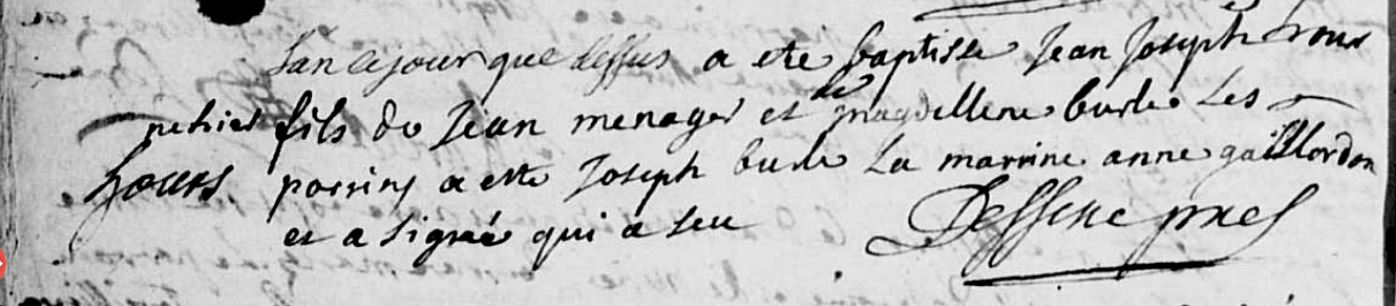 Lan et jour que dessus a ete baptisse Jean Joseph hour
fils de Jean menager et de magdellene burle Les
hours. parrins a este Joseph burle La marrine anne gaillardon
et a signée qui a seu
Dessene